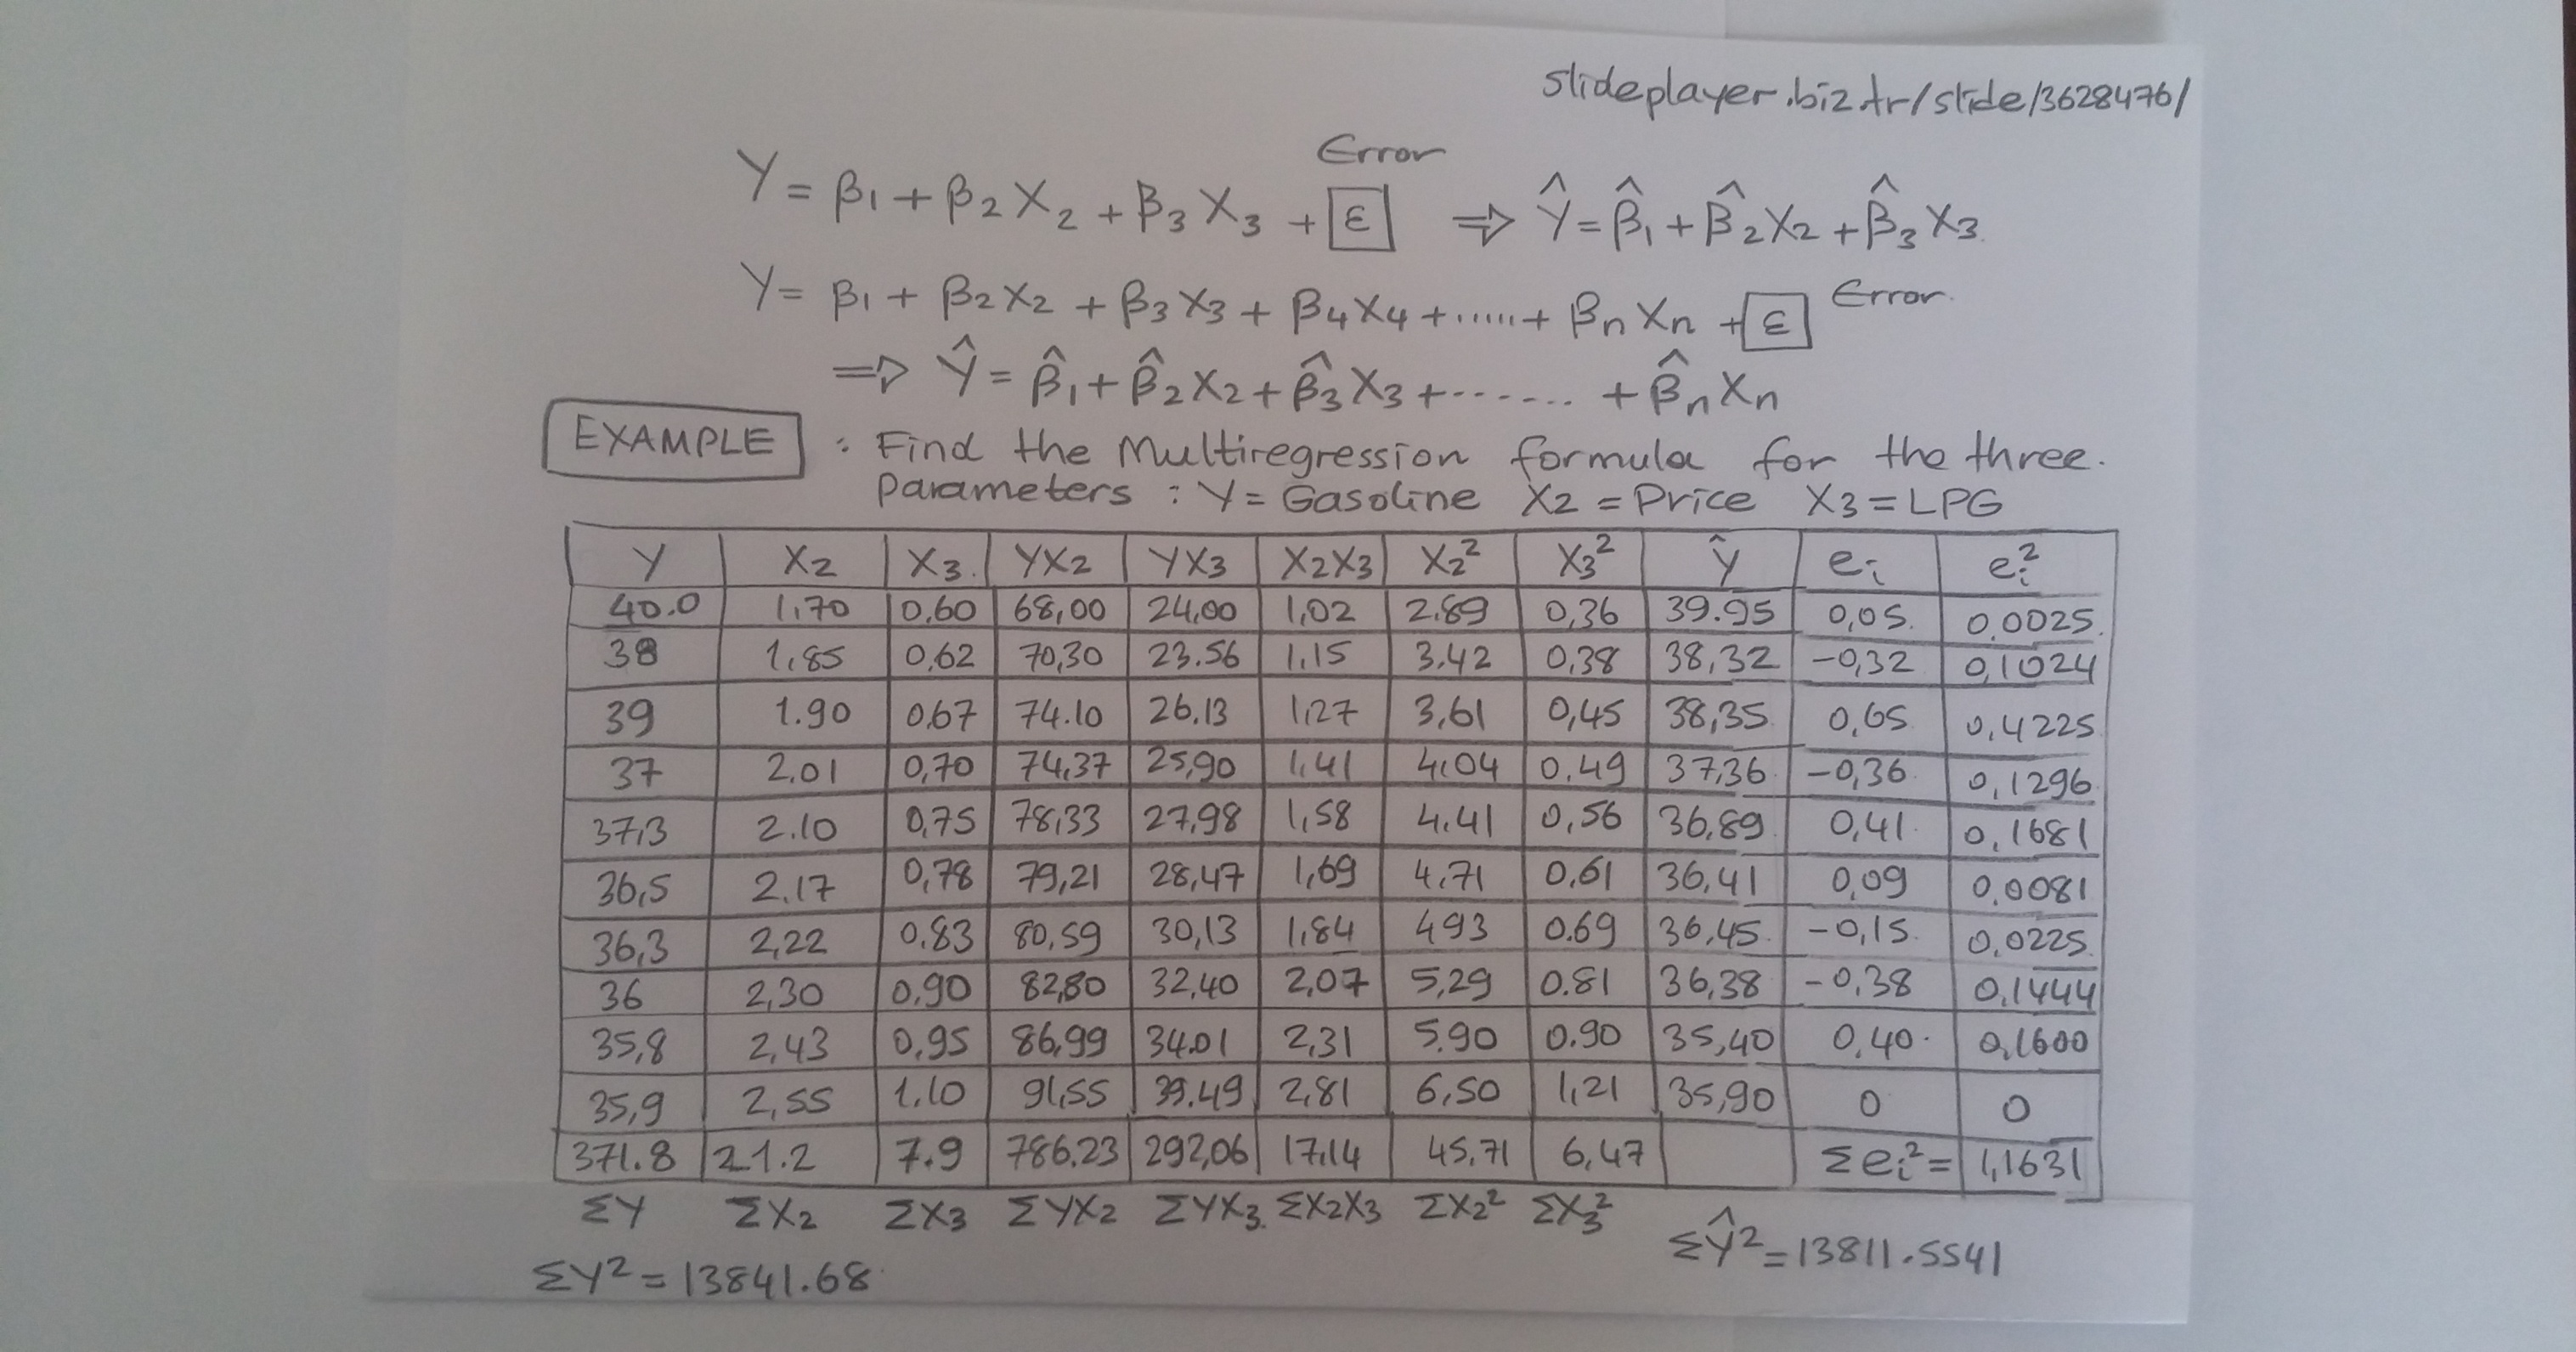 slideplayer.biz.tr/slide/3628476/
Error
Y = β1 + β2 X2 + β3 X3 + ε ⇒ Ŷ = β̂1 + β̂2 X2 + β̂3 X3
Y = β1 + β2 X2 + β3 X3 + β4 X4 + ...... + βn Xn + ε Error
⇒ Ŷ = β̂1 + β̂2 X2 + β̂3 X3 + ....... + β̂n Xn
EXAMPLE : Find the Multiregression formula for the three.
Parameters : Y = Gasoline X2 = Price X3 = LPG
Y X2 X3 YX2 YX3 X2X3 X2² X3² Ŷ ei ei²
40.0 1,70 0,60 68,00 24,00 1,02 2.89 0,36 39.95 0,05 0,0025
38 1,85 0,62 70,30 23.56 1,15 3.42 0,38 38,32 -0,32 0,1024
39 1.90 0,67 74.10 26.13 1,27 3,61 0,45 38,35 0,65 0,4225
37 2,01 0,70 74,37 25,90 1,41 4,04 0.49 37,36 -0,36 0,1296
37,3 2.10 0,75 78,33 27,98 1,58 4.41 0,56 36,89 0,41 0,1681
36,5 2.17 0,78 79,21 28,47 1,69 4,71 0,61 36,41 0,09 0,0081
36,3 2,22 0,83 80,59 30,13 1,84 493 0.69 36,45 -0,15 0,0225
36 2,30 0,90 82,80 32,40 2,07 5,29 0.81 36,38 -0,38 0,1444
35,8 2,43 0,95 86,99 34.01 2,31 5.90 0.90 35,40 0,40 0,1600
35,9 2,55 1,10 91,55 39.49 2,81 6,50 1,21 35,90 0 0
371.8 21.2 7.9 786.23 292,06 17,14 45,71 6,47 Σei² = 1,1631
ΣY ΣX2 ΣX3 ΣYX2 ΣYX3 ΣX2X3 ΣX2² ΣX3²
ΣŶ² = 13811.5541
ΣY² = 13841.68